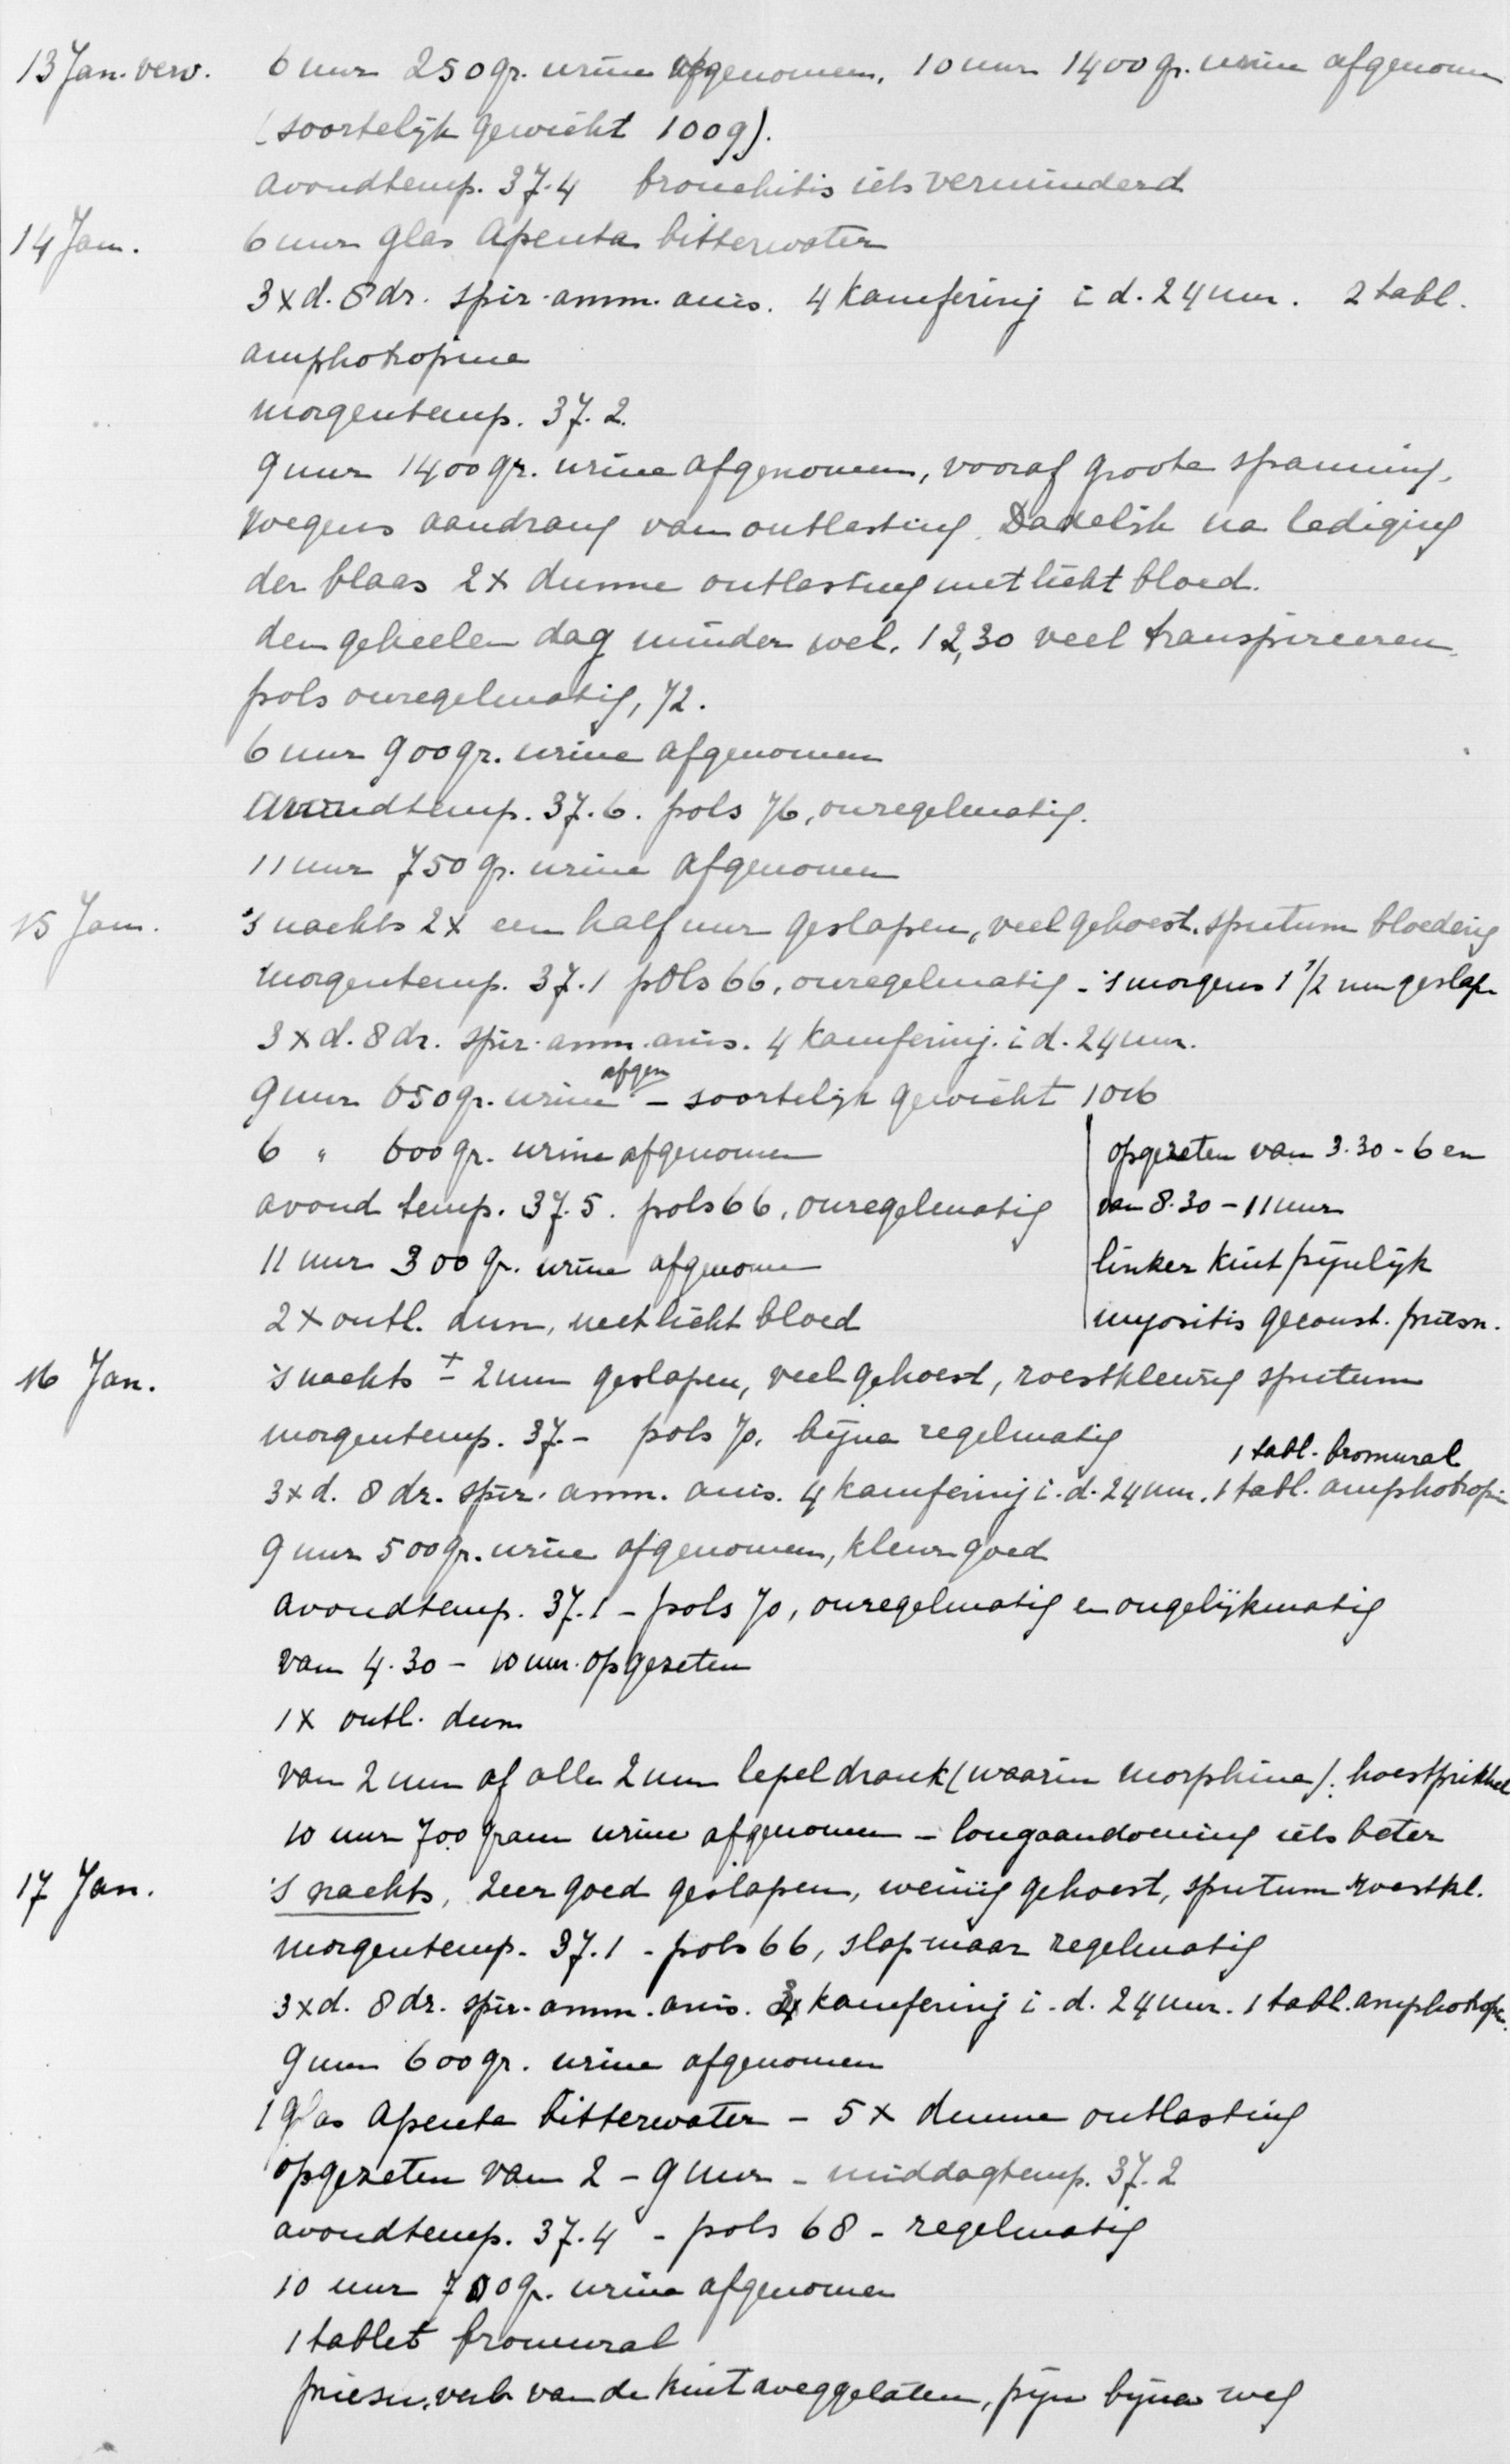 13 Jan. verv. 6 uur 250 gr. urine afgenomen. 10 uur 1400 gr. urine afgenomen
(soortelijk gewicht 1009).
avondtemp. 37.4 bronchitis iets verminderd
14 Jan. 6 uur glas Apenta bitterwater
3 x d. 8 dr. spir. amm. anis. 4 kamferinj i. d. 24 uur. 2 tabl.
amphotropine
morgentemp. 37.2.
9 uur 1400 gr. urine afgenomen, vooraf groote spanning,
wegens aandrang van ontlasting. Dadelijk na lediging
der blaas 2 x dunne ontlasting met licht bloed.
den geheelen dag minder wel. 12,30 veel transpireeren.
pols onregelmatig, 72.
6 uur 900 gr. urine afgenomen
Avondtemp. 37.6. pols 76, onregelmatig.
11 uur 750 gr. urine afgenomen
15 Jan. 's nachts 2 x een half uur geslapen, veel gehoest. sputum bloederig
morgentemp. 37.1 pols 66, onregelmatig - 's morgens 1 1/2 uur geslap
3 x d. 8 dr. spir. amm. anis. 4 kamferinj. i d. 24 uur.
9 uur 650 gr. urine afgen - soortelijk gewicht 1016
6 " 600 gr. urine afgenomen opgezeten van 3.30 - 6 en
avond temp. 37.5. pols 66, onregelmatig van 8.30 - 11 uur
11 uur 300 gr. urine afgenomen linker kuit pijnlijk
2 x ontl. dun, met licht bloed myositis geconst. priesn.
16 Jan. 's nachts ± 2 uur geslapen, veel gehoest, roestkleurig sputum
morgentemp. 37.- pols 70. bijna regelmatig
1 tabl. bromural
3 x d. 8 dr. spir. amm. anis. 4 kamferinj i. d. 24 uur. 1 tabl. amphotropin
9 uur 500 gr. urine afgenomen, kleur goed
avondtemp. 37.1 - pols 70, onregelmatig en ongelijkmatig
van 4.30 - 10 uur opgezeten
1 x ontl. dun
van 2 uur af alle 2 uur lepel drank (waarin morphine): hoestprikkel
10 uur 700 gram urine afgenomen - longaandoening iets beter
17 Jan. 's nachts, zeer goed geslapen, weinig gehoest, sputum roestkl.
morgentemp. 37.1 - pols 66, slap maar regelmatig
3 x d. 8 dr. spir. amm. anis. kamferinj i. d. 24 uur. 1 tabl. amphotrop.
9 uur 600 gr. urine afgenomen
1 glas Apenta bitterwater - 5 x dunne ontlasting
opgezeten van 2 - 9 uur - middagtemp. 37.2
avondtemp. 37.4 - pols 68 - regelmatig
10 uur 700 gr. urine afgenomen
1 tablet bromural
priesn. verb van de kuit weggelaten, pijn bijna weg